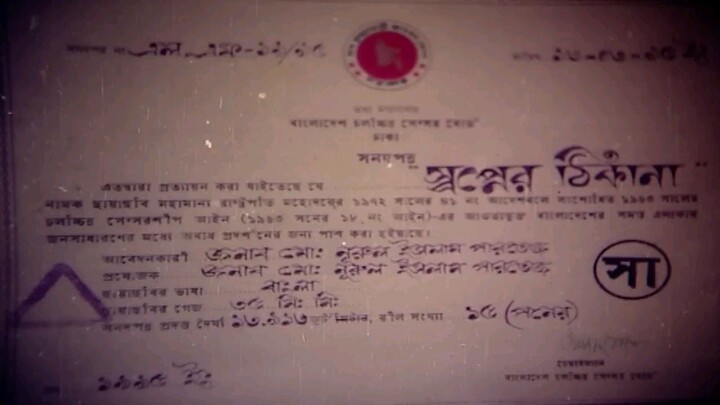 সনদপত্র নং এল এফ-১১/৯৫
তথ্য মন্ত্রণালয়
বাংলাদেশ চলচ্চিত্র সেন্সর বোর্ড
ঢাকা
সনদপত্র
"স্বপ্নের ঠিকানা"
এতদ্বারা প্রত্যায়ন করা যাইতেছে যে
নামক ছায়াছবি মহামান্য রাষ্ট্রপতি মহোদয়ের ১৯৭২ সনের ৪১ নং আদেশবলে সংশোধিত ১৯৬৩ সালের
চলচ্চিত্র সেন্সরশীপ আইন (১৯৬৩ সনের ১৮ নং আইন)-এর আওতাভুক্ত বাংলাদেশের সমগ্র এলাকায়
জনসাধারণের মধ্যে অবাধ প্রদর্শনের জন্য পাশ করা হইয়াছে।
আবেদনকারী জনাব মোঃ নূরুল ইসলাম পারভেজ
প্রযোজক জনাব মোঃ নূরুল ইসলাম পারভেজ
সা
ছায়াছবির ভাষা বাংলা
ছায়াছবির গেজ ৩৫ মিঃ মিঃ
সনদপত্র প্রদত্ত দৈর্ঘ্য ১৩.৯১৩ ফুট/মিটার, রীল সংখ্যা ১৫ (পনের)
চেয়ারম্যান
বাংলাদেশ চলচ্চিত্র সেন্সর বোর্ড
১৯৯৫ ইং